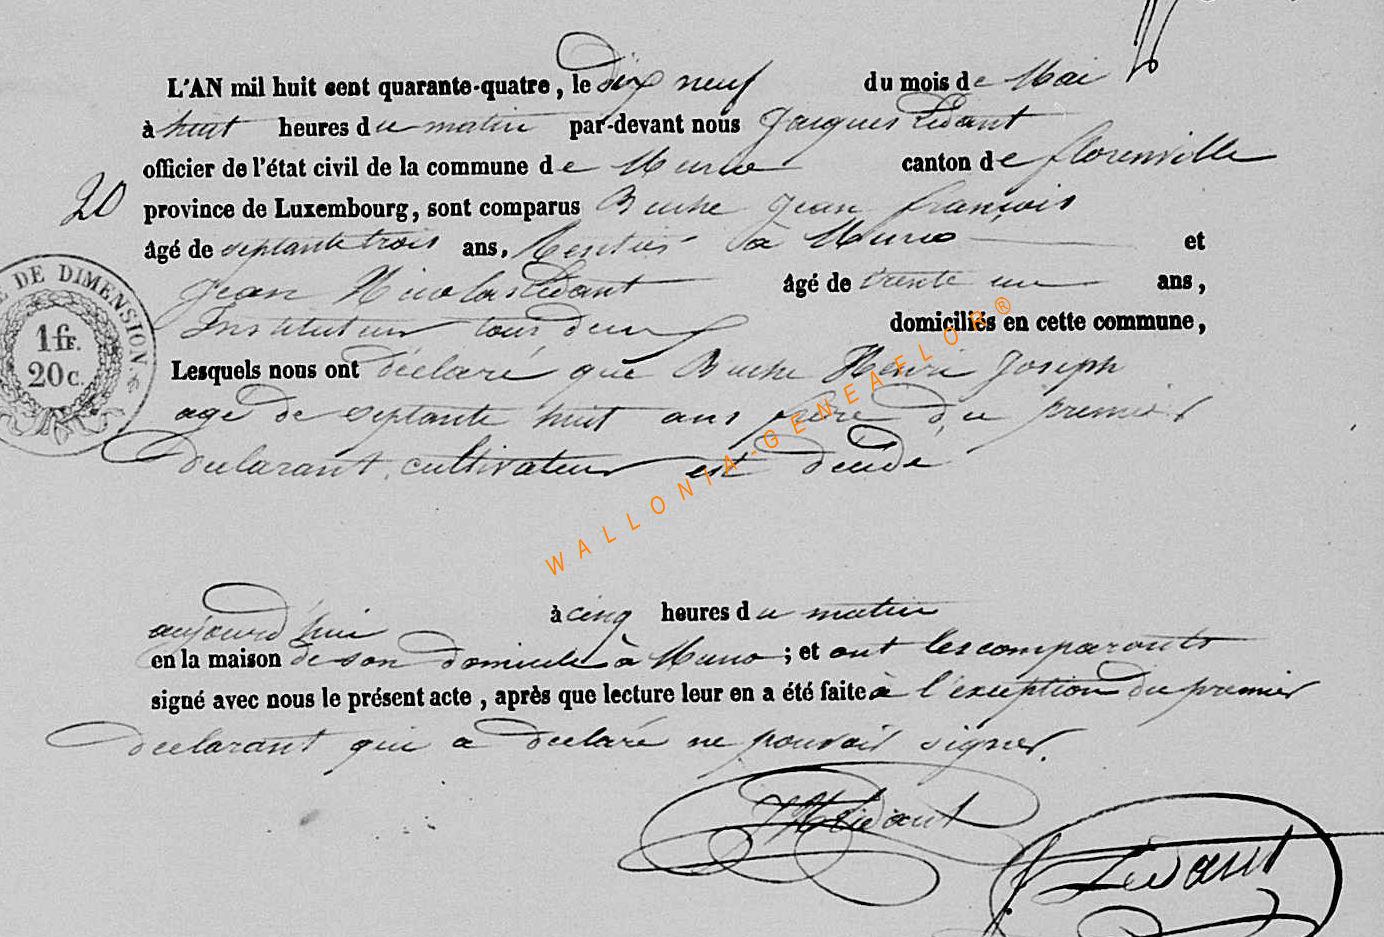 L'AN mil huit cent quarante-quatre, le dix neuf du mois de Mai
à huit heures du matin par-devant nous Jacques Lidant
officier de l'état civil de la commune de Muno canton de florenville
20 province de Luxembourg, sont comparus Buche Jean françois
âgé de septante trois ans, Rentier à Muno et
Jean Nicolas Lidant âgé de trente un ans,
Instituteur tous deux domiciliés en cette commune,
Lesquels nous ont déclaré que Buche Henri Joseph
agé de septante huit ans frère du premier
declarant, cultivateur est décédé
aujourd'hui à cinq heures du matin
en la maison de son domicile à Muno ; et ont les comparants
signé avec nous le présent acte, après que lecture leur en a été faite à l'exception du premier
declarant qui a declaré ne pouvoir signer.
Lidant
Lidant
DE DIMENSION
1 fr.
20 c.
WALLONIA-GENEAFLOR®